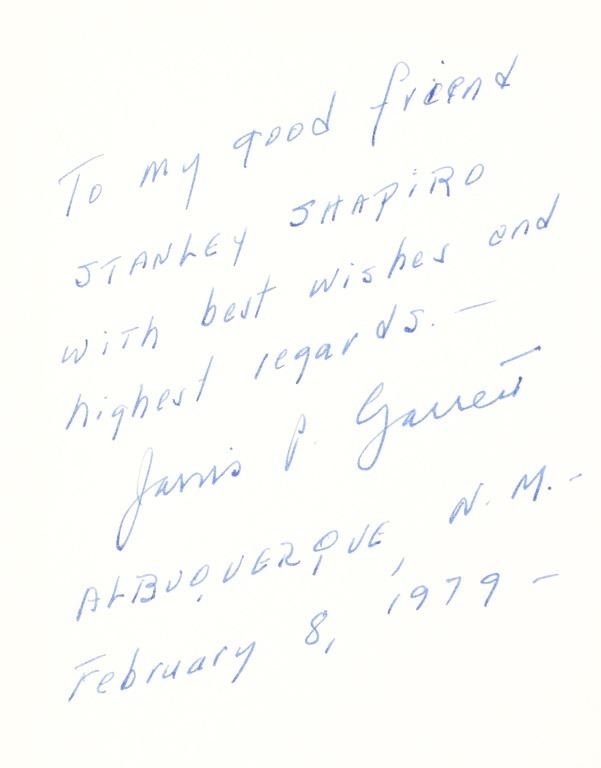 To my good friend
STANLEY SHAPIRO
with best wishes and
highest regards. —
Jarvis P. Garrett
ALBUQUERQUE, N. M. -
February 8, 1979 -